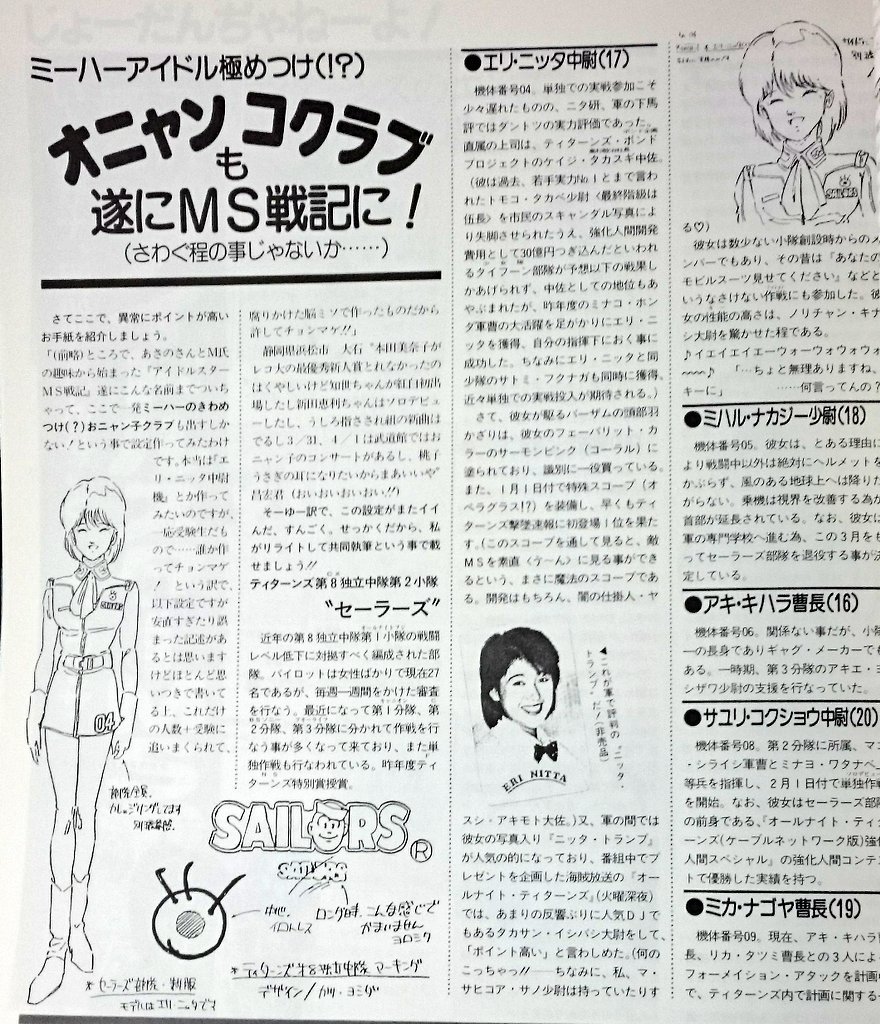 ミーハーアイドル極めつけ(!?)
オニャンコクラブ
も
遂にMS戦記に！
(さわぐ程の事じゃないか……)
さてここで、異常にポイントが高い
お手紙を紹介しましょう。
「(前略)ところで、あさのさんとM氏
の趣味から始まった『アイドルスター
MS戦記』遂にこんな名前までついち
ゃって、ここで一発ミーハーのきわめ
つけ(？)おニャン子クラブも出すしか
ない！という事で設定作ってみたわけ
です。本当は『エ
リ・ニッタ中尉
機』とか作って
みたいのですが、
一応受験生だも
ので……誰か作
ってチョンマゲ
！という訳で、
以下設定ですが
安直すぎたり誤
まった記述があ
るとは思います
けどほとんど思
いつきで書いて
る上、これだけ
の人数＋受験に
追いまくられて、
腐りかけた脳ミソで作ったものだから
許してチョンマゲ!!」
静岡県浜松市　大石"本田美奈子が
レコ大の最優秀新人賞とれなかったの
はくやしいけど知世ちゃんが紅白初出
場したし新田恵利ちゃんはソロデビュ
ーしたし、うしろ指さされ組の新曲は
でるし3/31、4/1は武道館ではお
ニャン子のコンサートがあるし、桃子
うさぎの耳になりたいからまあいいや"
昌宏君(おいおいおいおい!!)
そーゆー訳で、この設定がまたイイ
んだ、すんごく。せっかくだから、私
がリライトして共同執筆という事で載
せましょう!!
ティターンズ第8独立中隊第2小隊
"セーラーズ"
近年の第8独立中隊第1小隊の戦闘
レベル低下に対拠すべく編成された部
隊。パイロットは女性ばかりで現在27
名であるが、毎週一週間をかけた審査
を行なう。最近になって第1分隊、第
2分隊、第3分隊に分かれて作戦を行
なう事が多くなって来ており、また単
独作戦も行なわれている。昨年度ティ
ターンズ特別賞授賞。
SAILORS
04
SAILORS®
SAILORS
ロング時
こんな感じで
かまいません
ヨロシク
＊セーラーズ部隊・制服
モデルはエリ・ニッタです
＊ティターンズ第8独立中隊 マーキング
デザイン/カツ・ヨシダ
●エリ・ニッタ中尉(17)
機体番号04。単独での実戦参加こそ
少々遅れたものの、ニタ研、軍の下馬
評ではダントツの実力評価であった。
直属の上司は、ティターンズ・ボンド
プロジェクトのケイジ・タカスギ中佐。
(彼は過去、若手実力No.1とまで言わ
れたトモコ・タカベ少尉〈最終階級は
伍長〉を市民のスキャンダル写真によ
り失脚させられたうえ、強化人間開発
費用として30億円つぎ込んだといわれ
るタイフーン部隊が予想以下の戦果し
かあげられず、中佐としての地位もあ
やぶまれたが、昨年度のミナコ・ホン
ダ軍曹の大活躍を足がかりにエリ・ニ
ッタを獲得、自分の指揮下におく事に
成功した。ちなみにエリ・ニッタと同
少隊のサトミ・フクナガも同時に獲得、
近々単独での実戦投入が期待される。)
さて、彼女が駆るバーザムの頭部羽
かざりは、彼女のフェーバリット・カ
ラーのサーモンピンク(コーラル)に
塗られており、識別に一役買っている。
また、1月1日付で特殊スコープ(オ
ペラグラス!?)を装備し、早くもティ
ターンズ撃墜速報に初登場1位を果た
す。(このスコープを通して見ると、敵
MSを素直〈ケーん〉に見る事ができ
るという、まさに魔法のスコープであ
る。開発はもちろん、闇の仕掛人・ヤ
◀これが軍で評判の『ニッタ・
トランプ』だ！(非売品)
ERI NITTA
スシ・アキモト大佐。)又、軍の間では
彼女の写真入り『ニッタ・トランプ』
が人気の的になっており、番組中でプ
レゼントを企画した海賊放送の『オー
ルナイト・ティターンズ』(火曜深夜)
では、あまりの反響ぶりに人気DJで
もあるタカサン・イシバシ大尉をして、
「ポイント高い」と言わしめた。(何の
こっちゃっ!!――ちなみに、私、マ・
サヒコア・サノ少尉は持っていたりす
SAILORS
る♡)
彼女は数少ない小隊創設時からのメ
ンバーでもあり、その昔は『あなたの
モビルスーツ見せてください』などと
いうなさけない作戦にも参加した。彼
女の性能の高さは、ノリチャン・キナ
シ大尉を驚かせた程である。
♪イエイエイエーウォーウォウォウォ
～～～♪　「…ちょと無理ありますね、
キーに」　……何言ってんの？
●ミハル・ナカジー少尉(18)
機体番号05。彼女は、とある理由に
より戦闘中以外は絶対にヘルメットを
かぶらず、風のある地球上へは降りた
がらない。乗機は視界を改善する為か
首部が延長されている。なお、彼女は
軍の専門学校へ進む為、この3月をも
ってセーラーズ部隊を退役する事が決
定している。
●アキ・キハラ曹長(16)
機体番号06。関係ない事だが、小隊
一の長身でありギャグ・メーカーでも
ある。一時期、第3分隊のアキエ・ヨ
シザワ少尉の支援を行なっていた。
●サユリ・コクショウ中尉(20)
機体番号08。第2分隊に所属、マコ
・シライシ軍曹とミナヨ・ワタナベ
等兵を指揮し、2月1日付で単独作戦
を開始。なお、彼女はセーラーズ部隊
の前身である、『オールナイト・ティタ
ーンズ(ケーブルネットワーク版)強化
人間スペシャル』の強化人間コンテス
トで優勝した実績を持つ。
●ミカ・ナゴヤ曹長(19)
機体番号09。現在、アキ・キハラ曹
長、リカ・タツミ曹長との3人による
フォーメイション・アタックを計画中
で、ティターンズ内で計画に関する